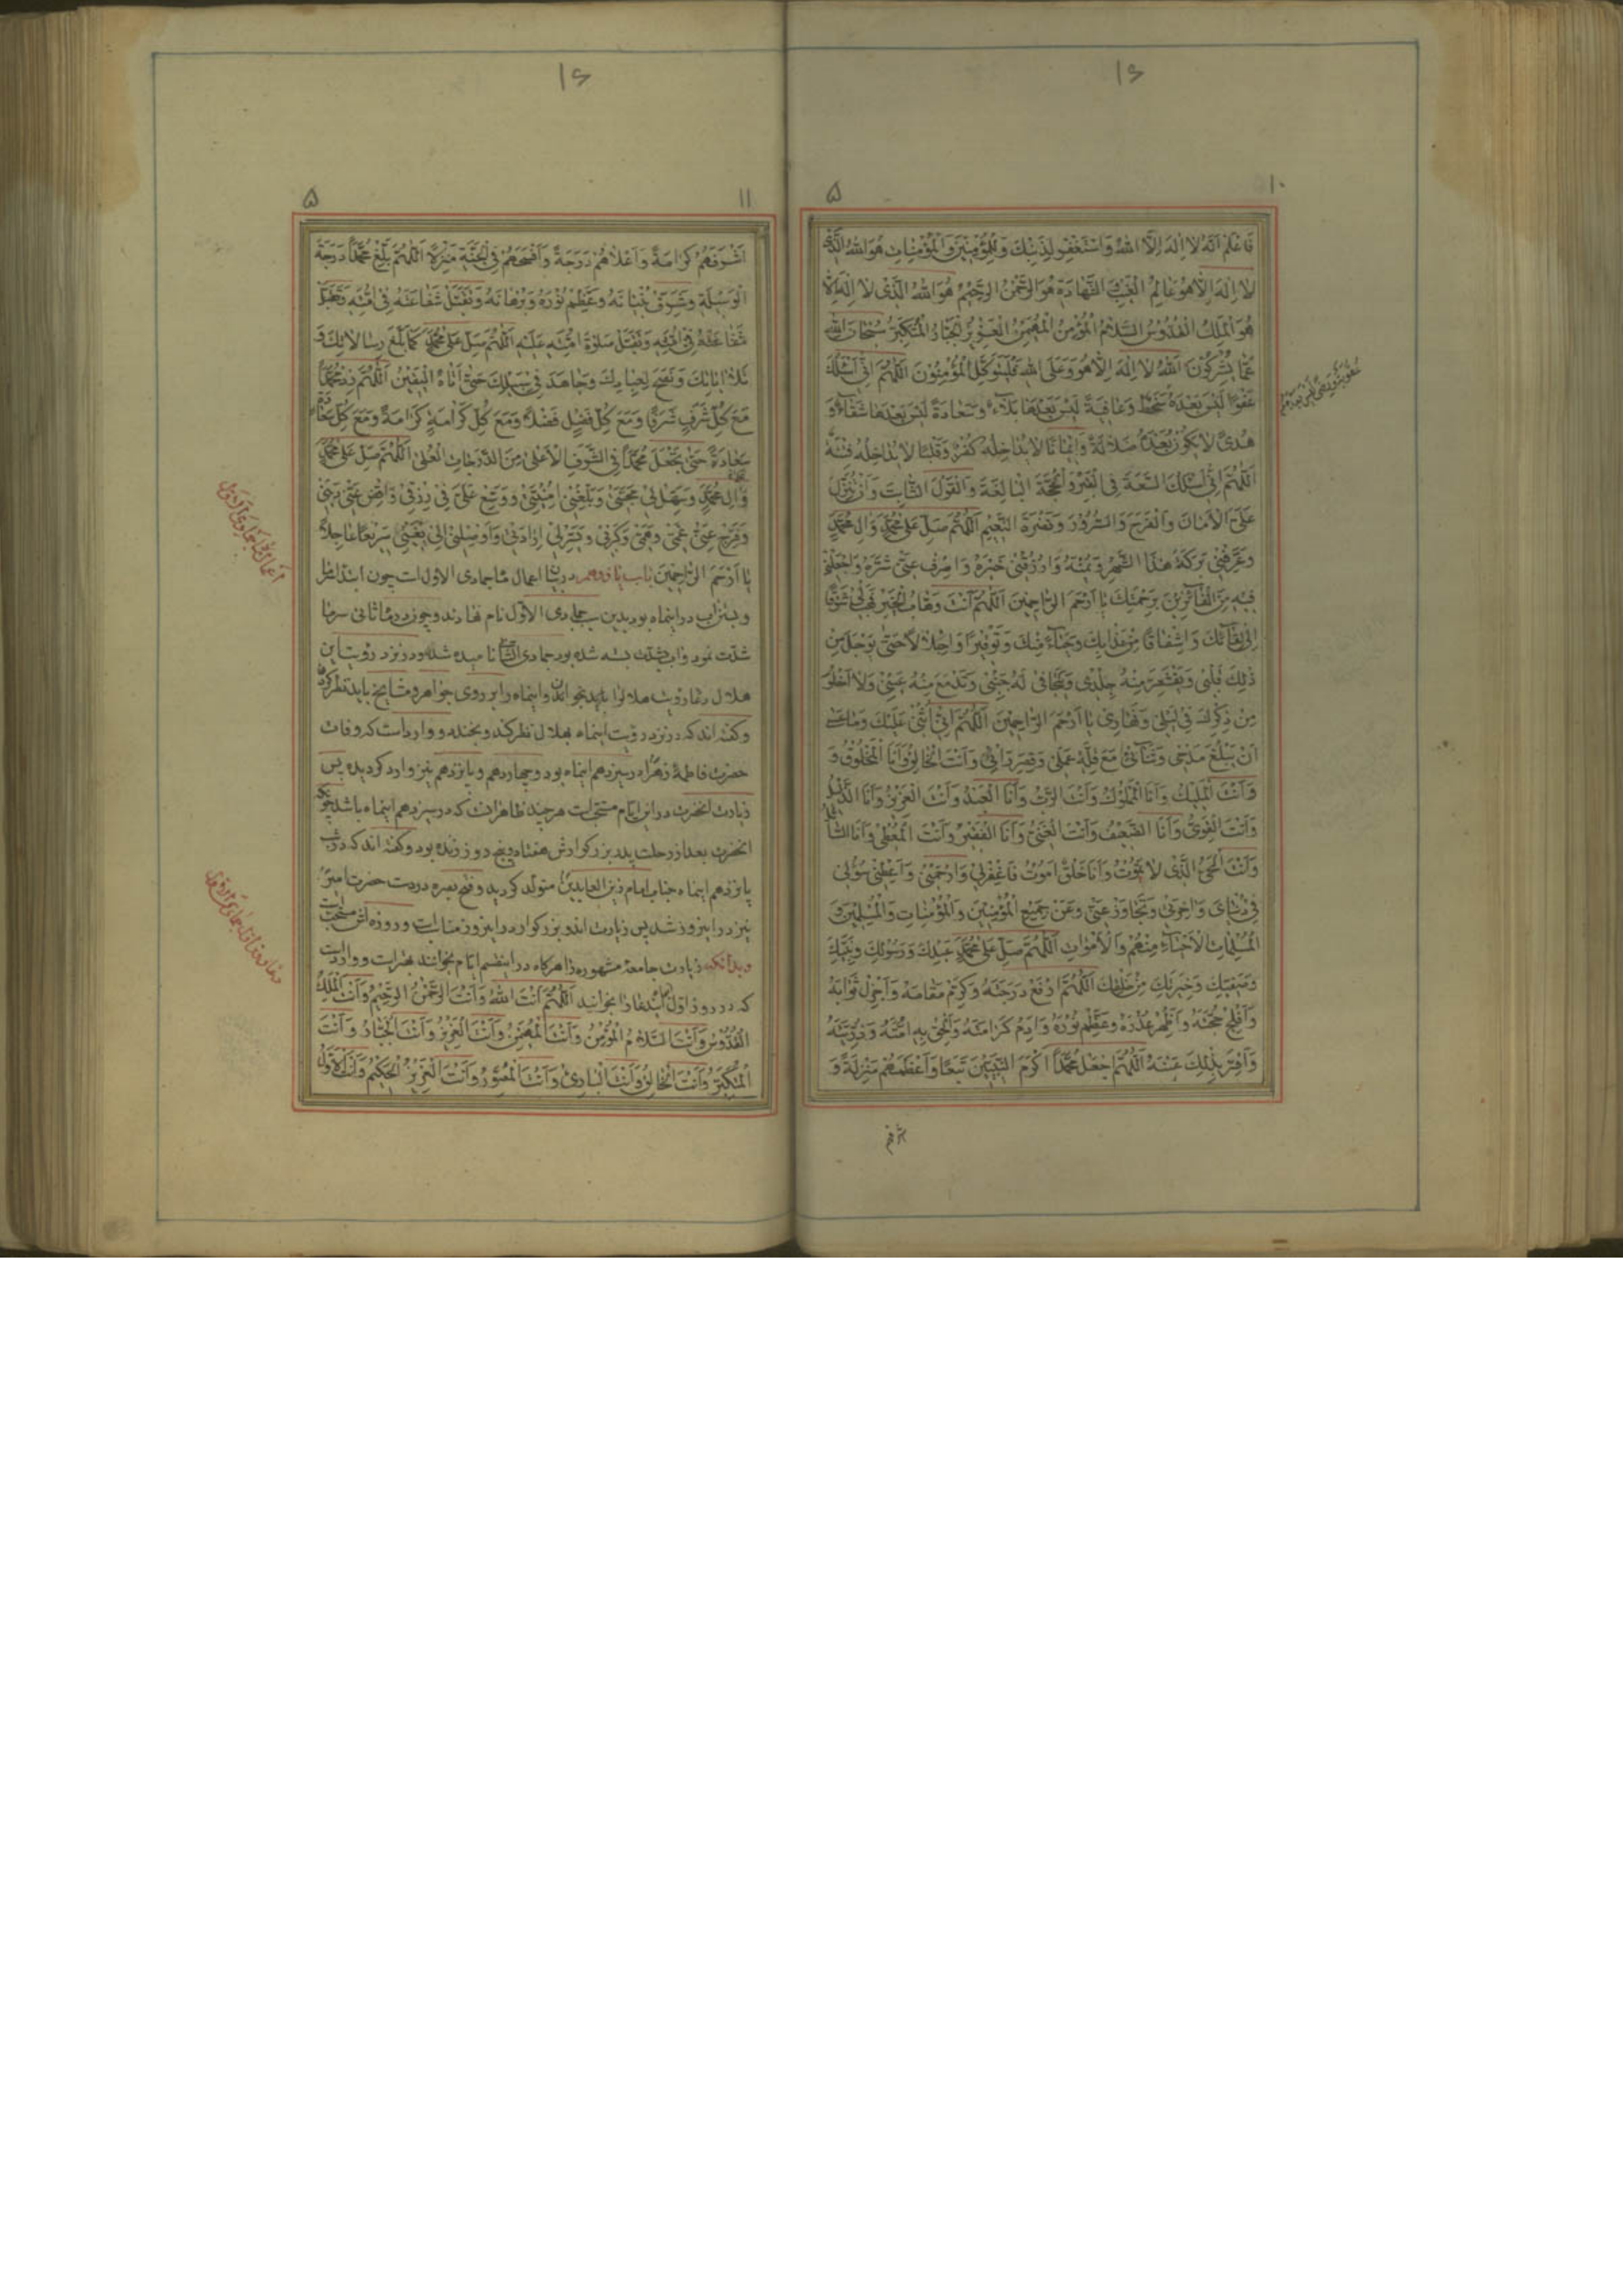 ۱۶
۱۰
۵
فَاعْلَمْ اَنَّهُ لا اِلهَ اِلَّا اللهُ وَاسْتَغْفِرْ لِذَنْبِكَ وَلِلْمُؤْمِنِينَ وَالْمُؤْمِنَاتِ هُوَ اللهُ الَّذِي
لا اِلهَ اِلَّا هُوَ عَالِمُ الْغَيْبِ وَالشَّهَادَةِ هُوَ الرَّحْمنُ الرَّحِيمُ هُوَ اللهُ الَّذِي لا اِلهَ اِلَّا
هُوَ الْمَلِكُ الْقُدُّوسُ السَّلامُ الْمُؤْمِنُ الْمُهَيْمِنُ الْعَزِيزُ الْجَبَّارُ الْمُتَكَبِّرُ سُبْحَانَ اللهِ
عَمَّا يُشْرِكُونَ اَللهُ لا اِلهَ اِلَّا هُوَ وَعَلَى اللهِ فَلْيَتَوَكَّلِ الْمُؤْمِنُونَ اَللّهُمَّ اِنِّي اَسْئَلُكَ
عَفْوًا لَيْسَ بَعْدَهُ سَخَطٌ وَعَافِيَةً لَيْسَ بَعْدَهَا بَلَاءٌ وَسَعَادَةً لَيْسَ بَعْدَهَا شَقَاءٌ وَ
هُدىً لا يَكُونُ بَعْدَهُ ضَلالَةٌ وَاِيمَانًا لا يُدَاخِلُهُ كُفْرٌ وَقَلْبًا لا يُدَاخِلُهُ فِتْنَةٌ
اَللّهُمَّ اِنِّي اَسْئَلُكَ السَّعَةَ فِي الْقَبْرِ وَالْحُجَّةَ الْبَالِغَةَ وَالْقَوْلَ الثَّابِتَ وَاَنْ تُنْزِلَ
عَلَيَّ الْاَمَانَ وَالْفَرَحَ وَالسُّرُورَ وَنَضْرَةَ النَّعِيمِ اَللّهُمَّ صَلِّ عَلى مُحَمَّدٍ وَالِ مُحَمَّدٍ
وَعَرِّفْنِي بَرَكَةَ هذَا الشَّهْرِ وَيُمْنَهُ وَارْزُقْنِي خَيْرَهُ وَاصْرِفْ عَنِّي شَرَّهُ وَاجْعَلْنِي
فِيهِ مِنَ الْفَائِزِينَ بِرَحْمَتِكَ يَا اَرْحَمَ الرَّاحِمِينَ اَللّهُمَّ اَنْتَ وَهَّابُ الْخَيْرِ فَهَبْ لِي شَوْقًا
اِلى لِقَائِكَ وَاِشْفَاقًا مِنْ عَذَابِكَ وَحَيَاءً مِنْكَ وَتَوْقِيرًا وَاِجْلالًا حَتّى يَوْجَلَ مِنْ
ذلِكَ قَلْبِي وَيَقْشَعِرَّ مِنْهُ جِلْدِي وَيَتَجَافى لَهُ جَنْبِي وَتَدْمَعَ مِنْهُ عَيْنِي وَلا اَخْلُوَ
مِنْ ذِكْرِكَ فِي لَيْلِي وَنَهَارِي يَا اَرْحَمَ الرَّاحِمِينَ اَللّهُمَّ اِنِّي اُثْنِي عَلَيْكَ وَمَا عَسى
اَنْ يَبْلُغَ مَدْحِي وَثَنَائِي مَعَ قِلَّةِ عَمَلِي وَقِصَرِ رَأْيِي وَاَنْتَ الْخَالِقُ وَاَنَا الْمَخْلُوقُ وَ
وَاَنْتَ الْمَلِيكُ وَاَنَا الْمَمْلُوكُ وَاَنْتَ الرَّبُّ وَاَنَا الْعَبْدُ وَاَنْتَ الْعَزِيزُ وَاَنَا الذَّلِيلُ
وَاَنْتَ الْقَوِيُّ وَاَنَا الضَّعِيفُ وَاَنْتَ الْغَنِيُّ وَاَنَا الْفَقِيرُ وَاَنْتَ الْمُعْطِي وَاَنَا السَّائِلُ
وَاَنْتَ الْحَيُّ الَّذِي لا تَمُوتُ وَاَنَا خَلْقٌ اَمُوتُ فَاغْفِرْ لِي وَارْحَمْنِي وَاَعْطِنِي سُؤْلِي
فِي دُنْيَايَ وَاخِرَتِي وَتَجَاوَزْ عَنِّي وَعَنْ جَمِيعِ الْمُؤْمِنِينَ وَالْمُؤْمِنَاتِ وَالْمُسْلِمِينَ وَ
الْمُسْلِمَاتِ الْاَحْيَاءِ مِنْهُمْ وَالْاَمْوَاتِ اَللّهُمَّ صَلِّ عَلى مُحَمَّدٍ عَبْدِكَ وَرَسُولِكَ وَنَبِيِّكَ
وَصَفِيِّكَ وَخِيَرَتِكَ مِنْ خَلْقِكَ اَللّهُمَّ ارْفَعْ دَرَجَتَهُ وَكَرِّمْ مَقَامَهُ وَاَجْزِلْ ثَوَابَهُ
وَاَفْلِجْ حُجَّتَهُ وَاَظْهِرْ عُذْرَهُ وَعَظِّمْ نُورَهُ وَاَدِمْ كَرَامَتَهُ وَاَلْحِقْ بِهِ اُمَّتَهُ وَذُرِّيَّتَهُ
وَاَقِرَّ بِذلِكَ عَيْنَهُ اَللّهُمَّ اجْعَلْ مُحَمَّدًا اَكْرَمَ النَّبِيِّينَ تَبَعًا وَاَعْظَمَهُمْ مَنْزِلَةً وَ
۱۶
۱۱
۵
اَشْرَفَهُمْ كَرَامَةً وَاَعْلاهُمْ دَرَجَةً وَاَفْسَحَهُمْ فِي الْجَنَّةِ مَنْزِلًا اَللّهُمَّ بَلِّغْ مُحَمَّدًا دَرَجَةَ
الْوَسِيلَةِ وَشَرِّفْ بُنْيَانَهُ وَعَظِّمْ نُورَهُ وَبُرْهَانَهُ وَتَقَبَّلْ شَفَاعَتَهُ فِي اُمَّتِهِ وَتَقَبَّلْ
شَفَاعَتَهُ فِي اُمَّتِهِ وَتَقَبَّلْ صَلوةَ اُمَّتِهِ عَلَيْهِ اَللّهُمَّ صَلِّ عَلى مُحَمَّدٍ كَمَا بَلَّغَ رِسَالاتِكَ وَ
تَلا ايَاتِكَ وَنَصَحَ لِعِبَادِكَ وَجَاهَدَ فِي سَبِيلِكَ حَتّى اَتَاهُ الْيَقِينُ اَللّهُمَّ زِدْ مُحَمَّدًا
مَعَ كُلِّ شَرَفٍ شَرَفًا وَمَعَ كُلِّ فَضْلٍ فَضْلًا وَمَعَ كُلِّ كَرَامَةٍ كَرَامَةً وَمَعَ كُلِّ سَعَادَةٍ
سَعَادَةً حَتّى تَجْعَلَ مُحَمَّدًا فِي الشَّرَفِ الْاَعْلى مِنَ الدَّرَجَاتِ الْعُلى اَللّهُمَّ صَلِّ عَلى مُحَمَّدٍ
وَالِ مُحَمَّدٍ وَسَهِّلْ لِي مَحَبَّتِي وَبَلِّغْنِي اُمْنِيَّتِي وَوَسِّعْ عَلَيَّ فِي رِزْقِي وَاقْضِ عَنِّي دَيْنِي
وَفَرِّجْ عَنِّي غَمِّي وَهَمِّي وَكَرْبِي وَيَسِّرْ لِي اِرَادَتِي وَاَوْصِلْنِي اِلى بُغْيَتِي سَرِيعًا عَاجِلًا
يَا اَرْحَمَ الرَّاحِمِينَ باب یازدهم در بیان اعمال ماه جمادی الاول است چون ابتداء
و بستن آب در اینماه بود بدین سبب جمادی الاول نام نهادند و چون در ماه ثانی سرما
شدت نمود و آب بشدت بسته شده بود جمادی الثانی نامیده شد و در نزد رؤیت این
هلال دعاء رؤیت هلال را باید بخوانند و اینماه را بر روی جواهر و مشایخ باید نظر کرد
و گفته‌اند که در نزد رؤیت اینماه بهلال نظر کند و بخندد و وارد است که وفات
حضرت فاطمهٔ زهرا در سیزدهم اینماه بود و چهاردهم و پانزدهم نیز وارد گردیده پس
زیارت انحضرت در این ایام مستحب است هر چند ظاهر آن که در سیزدهم اینماه باشد چونکه
انحضرت بعد از رحلت پدر بزرگوارش هفتاد و پنج روز زنده بود و گفته‌اند که در شب
پانزدهم اینماه جناب امام زین العابدین متولد گردید و فتح بصره در دست حضرت امیر
نیز در اینروز شد پس زیارت اندو بزرگوار در اینروز مناسب است و روزه‌اش مستحب است
و بدانکه زیارت جامعهٔ مشهوره را هرگاه در اینقسم ایام بخوانند بهتر است و وارد است
که در روز اول این دعا را بخوانید اَللّهُمَّ اَنْتَ اللهُ وَاَنْتَ الرَّحْمنُ الرَّحِيمُ وَاَنْتَ الْمَلِكُ
الْقُدُّوسُ وَاَنْتَ السَّلامُ الْمُؤْمِنُ وَاَنْتَ الْمُهَيْمِنُ وَاَنْتَ الْعَزِيزُ وَاَنْتَ الْجَبَّارُ وَاَنْتَ
الْمُتَكَبِّرُ وَاَنْتَ الْخَالِقُ وَاَنْتَ الْبَارِئُ وَاَنْتَ الْمُصَوِّرُ وَاَنْتَ الْعَزِيزُ الْحَكِيمُ وَاَنْتَ الْاَوَّلُ